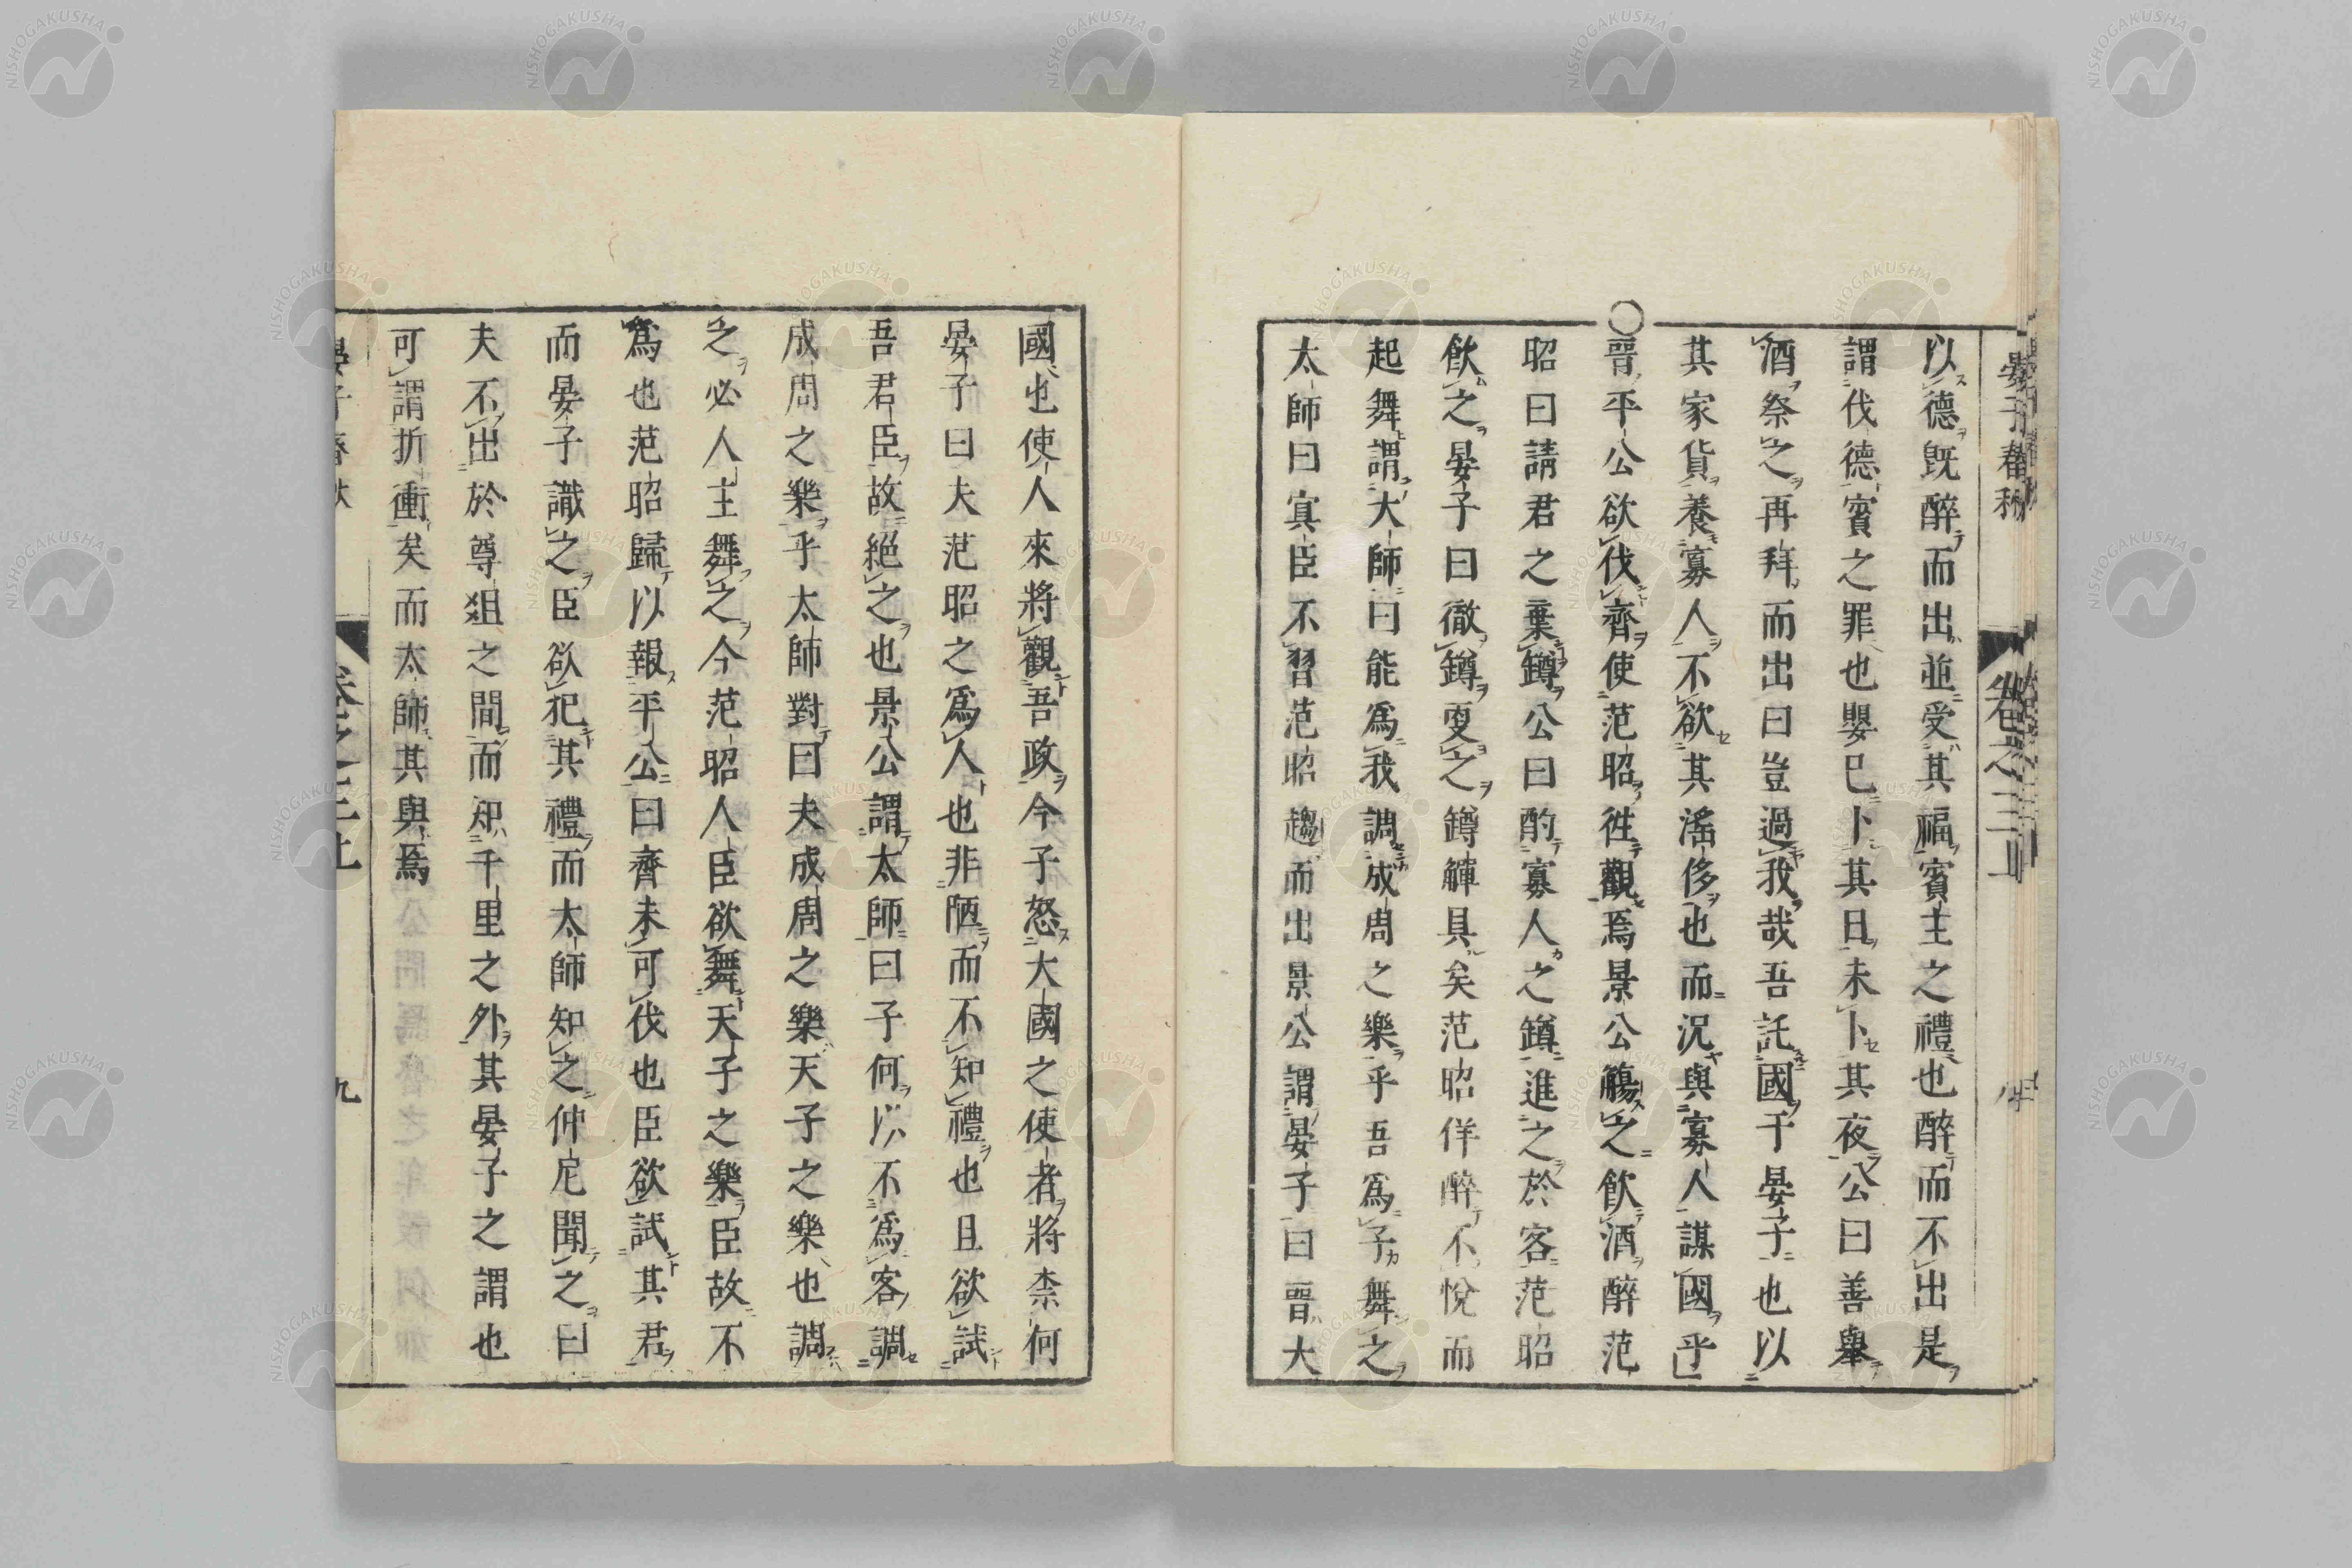 晏子春秋 卷之三上
以德既醉而出並受其福賓主之禮也醉而不出是
謂伐德賓之罪也嬰已卜其日未卜其夜公曰善舉
酒祭之再拜而出曰豈過我哉吾託國于晏子也以
其家貨養寡人不欲其淫侈也而況與寡人謀國乎
○晉平公欲伐齊使范昭徃觀焉景公觴之飲酒醉范
昭曰請君之棄罇公曰酌寡人之罇進之於客范昭
飲之晏子曰徹罇更之罇觶具矣范昭佯醉不悅而
起舞謂大師曰能爲我調成周之樂乎吾爲子舞之
太師曰冥臣不習范昭趨而出景公謂晏子曰晉大
國也使人來將觀吾政今子怒大國之使者將柰何
晏子曰夫范昭之爲人也非陋而不知禮也且欲試
吾君臣故絕之也景公謂太師曰子何以不爲客調
成周之樂乎太師對曰夫成周之樂天子之樂也調
之必人主舞之今范昭人臣欲舞天子之樂臣故不
爲也范昭歸以報平公曰齊未可伐也臣欲試其君
而晏子識之臣欲犯其禮而太師知之仲尼聞之曰
夫不出於尊俎之間而知千里之外其晏子之謂也
可謂折衝矣而太師其與焉
九
NISHOGAKUSHA